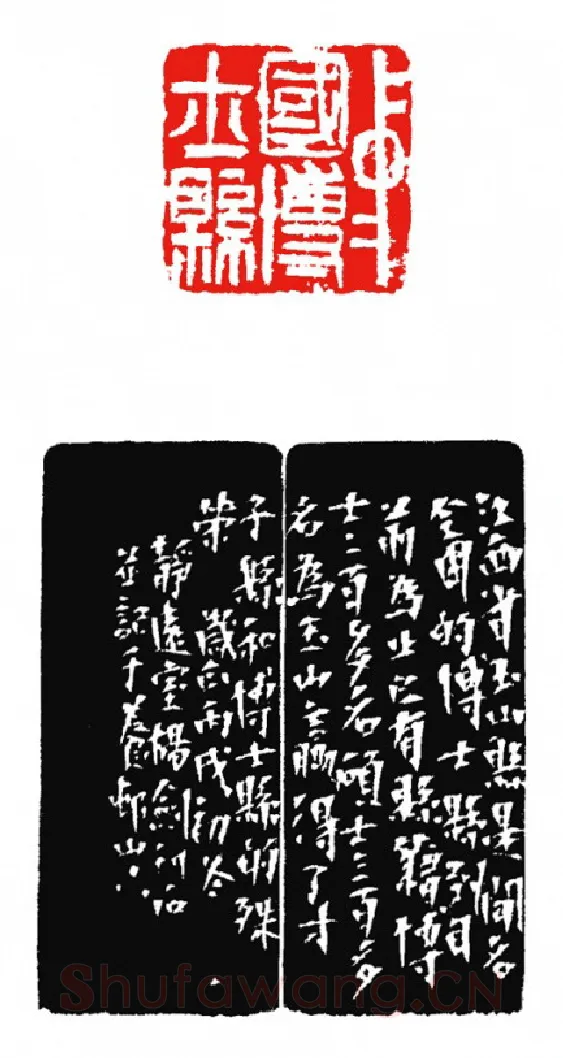 中
國博
士縣
江西省玉山縣是聞名
全国的博士縣到目
前为止已有縣籍博
士二百多名碩士三百多
名為玉山贏得了才
子縣和博士縣的殊
榮 歲在丙戌初冬
靜遠室楊劍刊石
並記于
Shufawang.CN